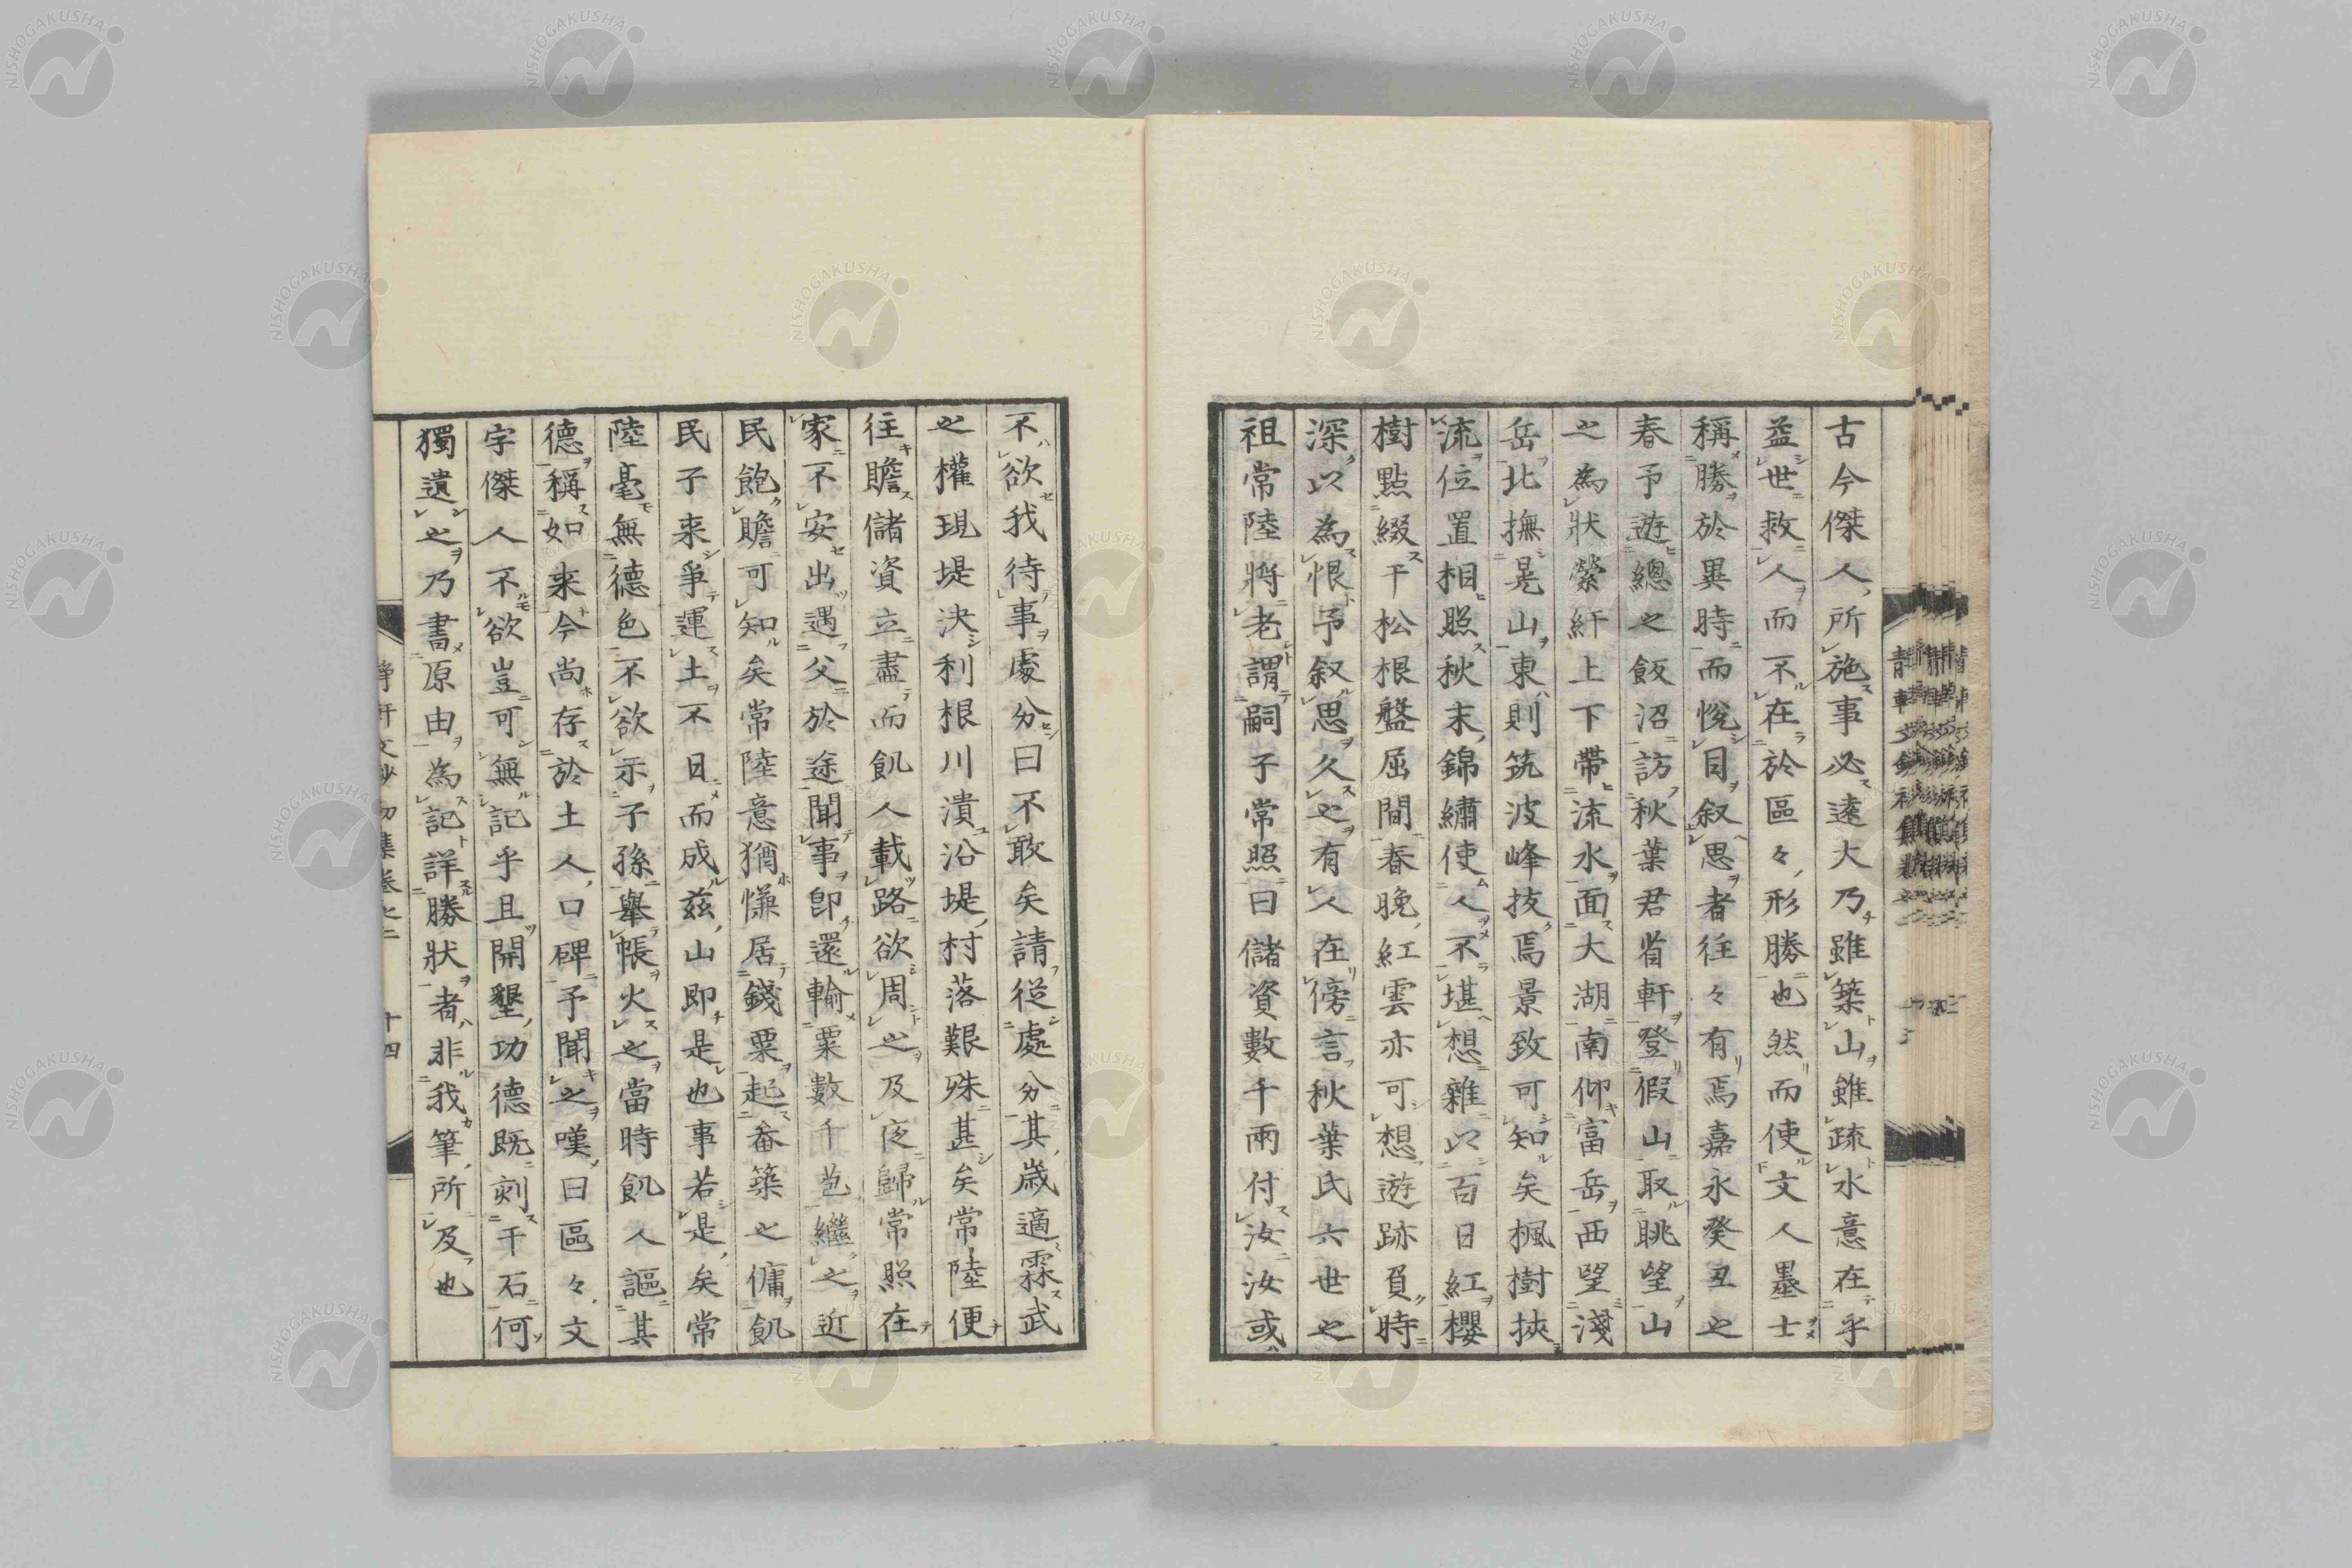 古今傑人所施事必遠大乃雖築山雖疏水意在乎
益世救人而不在於區々形勝也然而使文人墨士
稱勝於異時而悅目叙思者往々有焉嘉永癸丑之
春予遊總之飯沼訪秋葉君省軒登假山取眺望山
之為狀縈紆上下帶流水面大湖南仰富岳西望淺
岳北撫晃山東則筑波峰抜焉景致可知矣楓樹挾
流位置相照秋末錦繡使人不堪想雜以百日紅櫻
樹點綴于松根盤屈間春晚紅雲亦可想遊跡負時
深以為恨予叙思久之有人在傍言秋葉氏六世之
祖常陸將老謂嗣子常照曰儲資數千兩付汝汝或
不欲我待事處分曰不敢矣請從處分其歲適霖武
之權現堤決利根川潰沿堤村落艱殊甚矣常陸便
往贍儲資立盡而飢人載路欲周之及夜歸常照在
家不安出遇父於途聞事即還輸粟數千苞繼之近
民飽贍可知矣常陸意猶慊居錢粟起畚築之傭飢
民子來爭運土不日而成茲山即是也事若是矣常
陸毫無德色不欲示子孫舉帳火之當時飢人謳其
德稱如来今尚存於土人口碑予聞之嘆曰區々文
字傑人不欲豈可無記乎且開墾功德既刻于石何
獨遺之乃書原由為記詳勝狀者非我筆所及也
十四
NISHOGAKUSHA